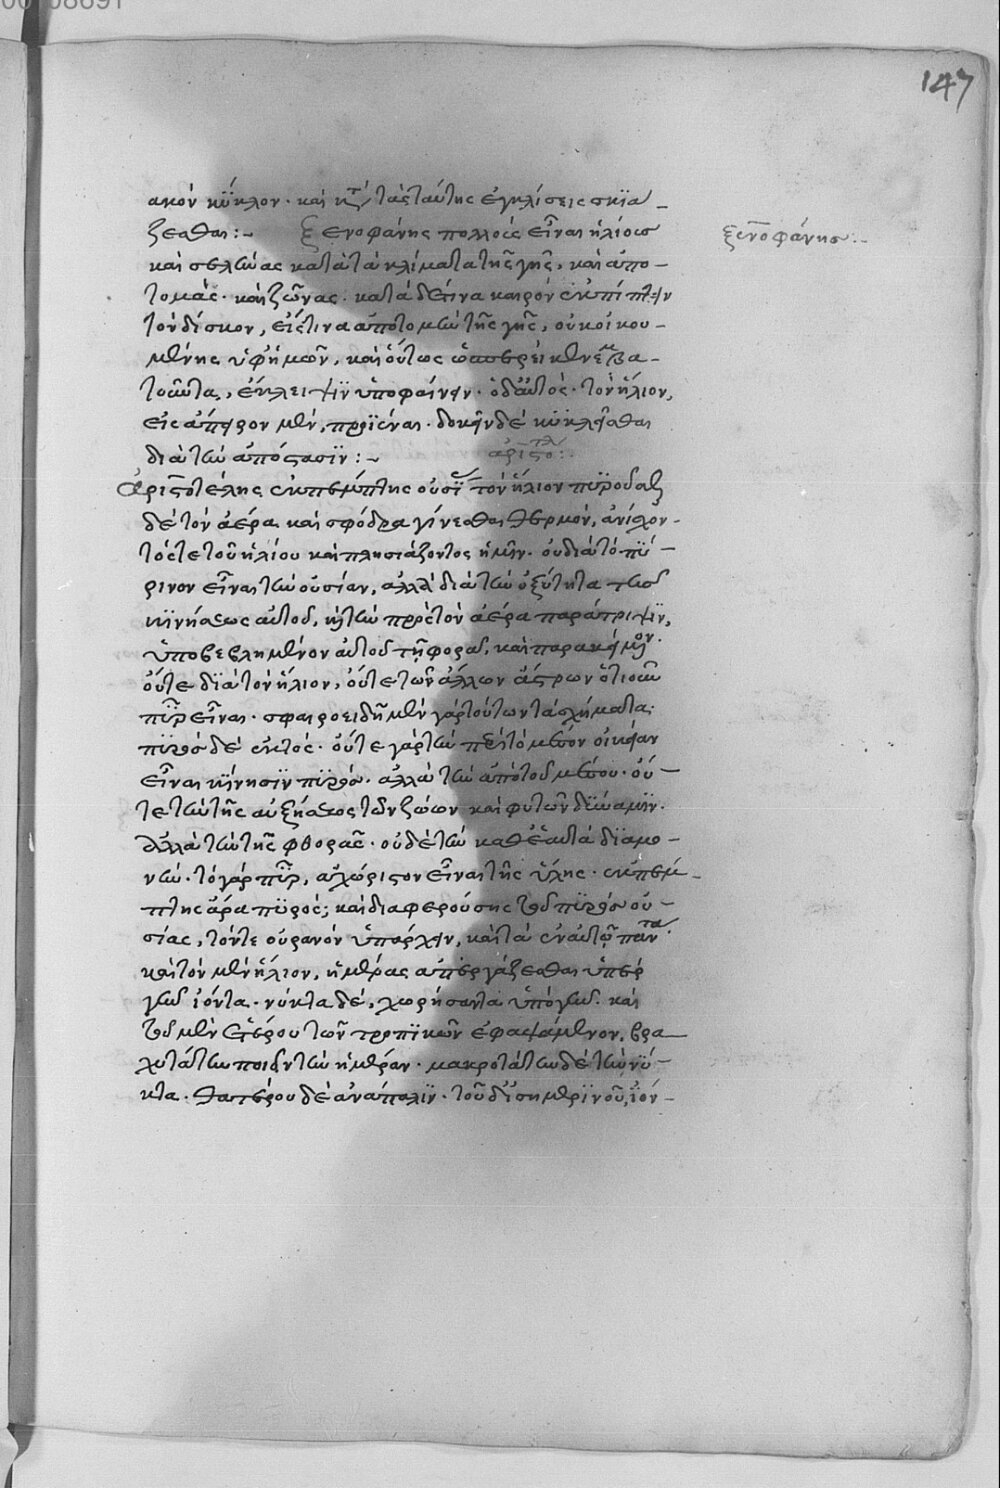 147
ακὸν κύκλον· καὶ κατὰ τὰς ταύτης ἐγκλίσεις σκιά–
ζεσθαι:~ Ξενοφάνης πολλοὺς εἶναι ἡλίους
ξενοφάνης:~
καὶ σελήνας κατὰ τὰ κλίματα τῆς γῆς, καὶ ἀπο–
τομὰς· καὶ ζώνας· κατὰ δέ τινα καιρὸν ἐκπίπτειν
τὸν δίσκον, εἴς τινα ἀποτομὴν τῆς γῆς, οὐκ οἰκου–
μένης ὑφ' ἡμῶν, καὶ οὕτως ὥσπερεὶ κενεμβα–
τοῦντα, ἔκλειψιν ὑποφαίνειν· ὁ δ' αὐτὸς· τὸν ἥλιον,
εἰς ἄπειρον μὲν, προϊέναι· δοκεῖν δὲ κυκλεῖσθαι
διὰ τὴν ἀπόστασιν:~ ἀριστοτλ:
Ἀριστοτέλης ἐκ πέμπτης οὐσί τὸν ἥλιον πυροῦσθαι
δὲ τὸν ἀέρα καὶ σφόδρα γίνεσθαι θερμὸν, ἀνίσχον–
τός τε τοῦ ἡλίου καὶ πλησιάζοντος ἡμῖν· οὐ διὰ τὸ πύ–
ρινον εἶναι τὴν οὐσίαν, ἀλλὰ διὰ τὴν ὀξύτητα τῆς
κινήσεως αὐτοῦ, κὴ τὴν πρὸς τὸν ἀέρα παράτριψιν,
ὑποβεβλημένον αὐτοῦ τῇ φορᾷ, καὶ παρακείμενον·
οὔτε διὰ τὸν ἥλιον, οὔτε τῶν ἄλλων ἄστρων ὁτιοῦν
πῦρ εἶναι· σφαιροειδῆ μὲν γὰρ τούτων τὰ σχήματα·
πυρὸς δὲ ἐκτός· οὔτε γὰρ τὴν πρὸς τὸ μέσον οἰκείαν
εἶναι κίνησιν πυρὸς· ἀλλὰ τὴν ἀπὸ τοῦ μέσου· οὔ–
τε τὴν τῆς αὐξήσεως τῶν ζώων καὶ φυτῶν δύναμιν·
ἀλλὰ τὴν τῆς φθορᾶς· οὐδὲ τὴν καθ' ἑαυτὰ διαμο–
νήν· τὸ γὰρ πῦρ, ἀχώριστον εἶναι τῆς ὕλης· ἐκ πέμ–
πτης ἄρα πυρὸς; καὶ διαφερούσης τοῦ πυρὸς οὐ–
σίας, τόν τε οὐρανὸν ὑπάρχειν, καὶ τὰ ἐν αὐτῷ πάντα·
καὶ τὸν μὲν ἥλιον, ἡμέρας ἀπεργάζεσθαι ὑπὲρ
γῆν ἰόντα· νύκτα δέ, χωρήσαντα ὑπὸ γῆν· καὶ
τοῦ μὲν ἑτέρου τῶν τροπικῶν ἐφαψάμενον, βρα–
χυτάτην ποιεῖν τὴν ἡμέραν· μακροτάτην δὲ τὴν νύ–
κτα· θατέρου δὲ ἀνάπαλιν· τοῦ δ' ἰσημερινοῦ, ἰόν–